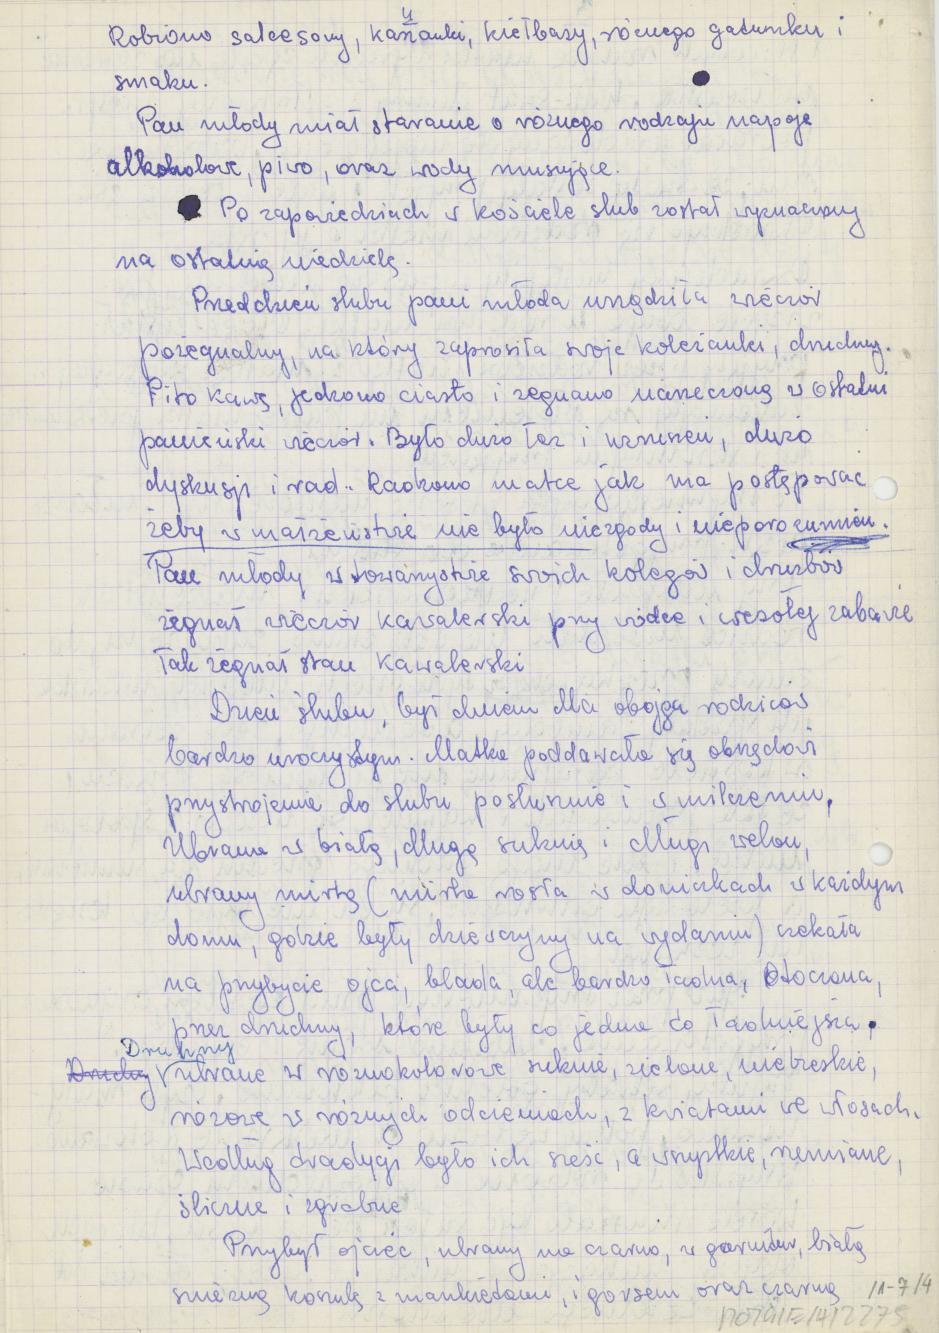 Robiono salcesony, kaszanki, kiełbasy, różnego gatunku i
smaku.
Pan młody miał staranie o różnego rodzaju napoje
alkoholowe, piwo, oraz wody musujące.
Po zapowiedziach w kościele ślub został wyznaczony
na ostatnią niedzielę.
Przeddzień ślubu pani młoda urządziła wieczór
pożegnalny, na który zaprosiła swoje koleżanki, druhny.
Pito kawę, jedzono ciasto i żegnano narzeczoną w ostatni
panieński wieczór. Było dużo łez i wzruszeń, dużo
dyskusji i rad. Radzono matce jak ma postępować
żeby w małżeństwie nie było niezgody i nieporozumień.
Pan młody w towarzystwie swoich kolegów i drużbów
żegnał wieczór kawalerski przy wódce i wesołej zabawie
Tak żegnał stan kawalerski
Dzień ślubu, był dniem dla obojga rodziców
bardzo uroczystym. Matka poddawała się obrzędowi
przystrojenia do ślubu posłusznie i w milczeniu,
Ubrana w białą, długą suknię i długi welon,
ubrany mirtą (mirta rosła w doniczkach w każdym
domu, gdzie były dziewczyny na wydaniu) czekała
na przybycie ojca, blada, ale bardzo ładna, Otoczona,
przez druhny, które były co jedna to ładniejsza.
Druhny
Druhny ubrane w różnokolorowe suknie, zielone, niebieskie,
różowe w różnych odcieniach, z kwiatami we włosach.
Według tradycji było ich sześć, a wszystkie, rumiane,
śliczne i zgrabne
Przybył ojciec, ubrany na czarno, w garnitur, białą
śnieżną koszulę z mankietami, i gorsem oraz czarną